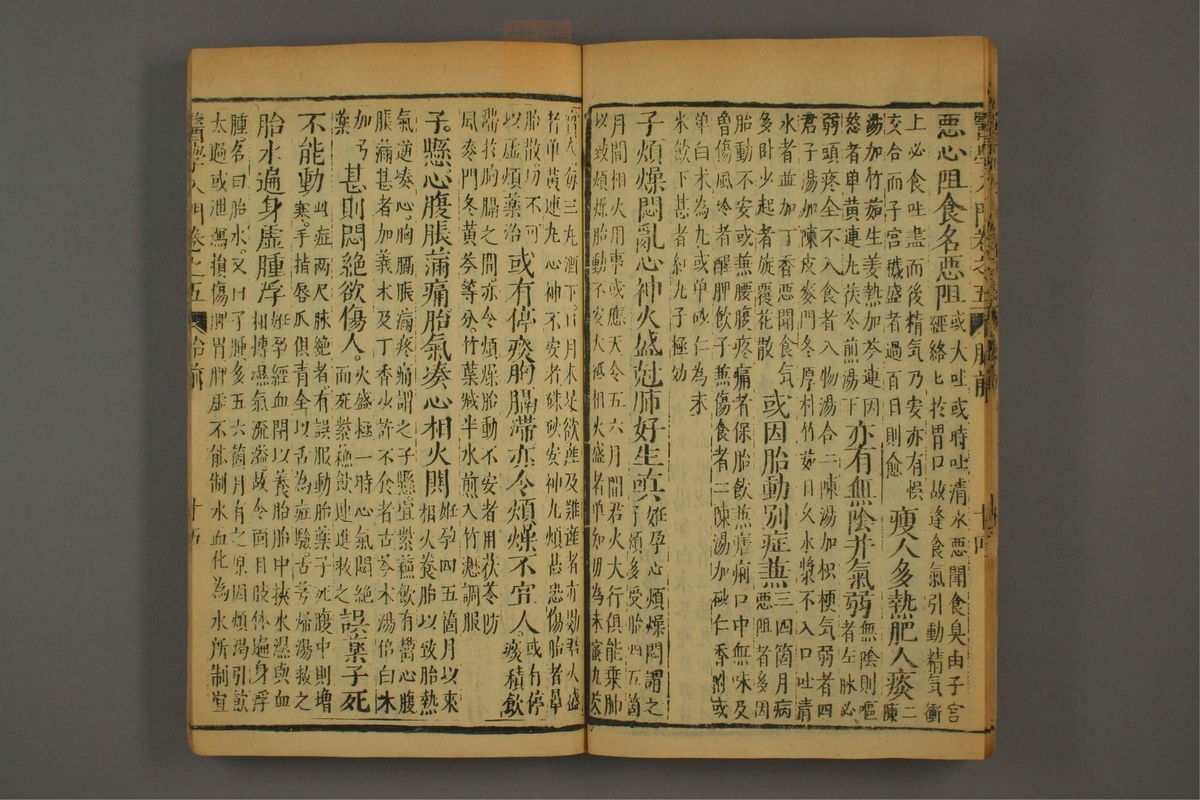 惡心阻食名惡阻 或大吐或時吐清水惡聞食臭由子宮
上必食吐盡而後精气乃安亦有悞 經絡匕於胃口故逢食氣引動精气衝
交合而子宮穢盛者過百日則愈 瘦人多熱肥人痰 二陳
湯加竹茹生姜熱加芩連因 亦有無陰并氣弱 無陰則嘔
怒者单黃連丸茯苓煎湯下 者左脉必
弱頭疼全不入食者入物湯合二陳湯加枳梗气弱者四
君子湯加陳皮麥門冬厚朴竹茹日久水漿不入口吐清
水者並加丁香惡聞食气 或因胎動别症兼 三四箇月病
多卧少起者旋覆花散 惡阻者多因
胎動不安或兼腰腹疼痛者保胎飲兼瘧痢口中無味及
曾傷風冷者醒脾飲子兼傷食者二陳湯加砂仁香附或
单白术為丸或单砂仁為末
米飲下甚者紅丸子極効
子煩燥悶亂心神火盛尅肺好生嗔 姙孕心煩燥悶謂之
子煩多受胎四五箇
月間相火用事或應天令五六月間君火大行俱能乗肺
以致煩燥胎動不安大抵相火盛者单知母為末蜜丸芡
實大每三丸酒下日月未足欲產及難産者亦効君火盛
者单黃連丸心神不安者硃砂安神丸煩甚恐傷胎者罩
胎散切不可
以虛煩藥治 或有停痰胸膈滯亦令煩燥不宜人 或有停
痰積飲
滯於胸膈之間亦令煩燥胎動不安者用茯苓防
風麥門冬黃芩等分竹葉减半水煎入竹瀝調服
子懸心腹脹滿痛胎氣凑心相火関 姙孕四五箇月以來
相火養胎以致胎熱
氣逆凑心胸膈脹滿疼痛謂之子懸宜紫蘓飲有欝心腹
脹滿甚者加莪术及丁香少許不食者古芩术湯倍白术
加芎
藥 甚則悶絶欲傷人 火盛極一時心气悶絶
而死紫蘓飲連進救之 誤藥子死
不能動 此症兩尺脉絶者有誤服動胎藥子死腹中則増
寒手指唇爪俱青全以舌為症驗古芎歸湯救之
胎水遍身虛腫浮 姙孕經血閉以養胎胎中挾水濕與血
相搏濕氣流溢故令面目肢体遍身浮
腫名曰胎水又曰子腫多五六箇月有之原因煩渴引飲
太過或泄瀉損傷脾胃脾虛不能制水血化為水所制宜
醫學入門卷之五 胎前 十四
醫學入門卷之五 胎前 十五